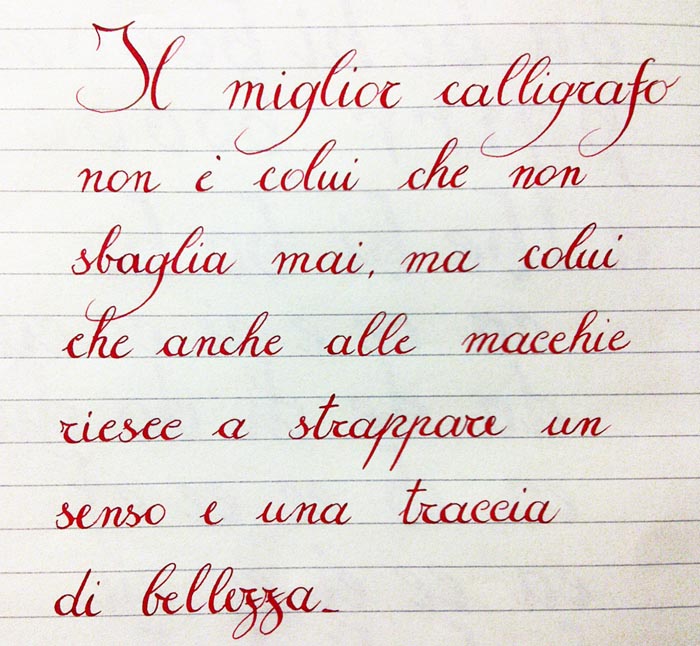 Il miglior calligrafo
non è colui che non
sbaglia mai, ma colui
che anche alle macchie
riesce a strappare un
senso e una traccia
di bellezza_